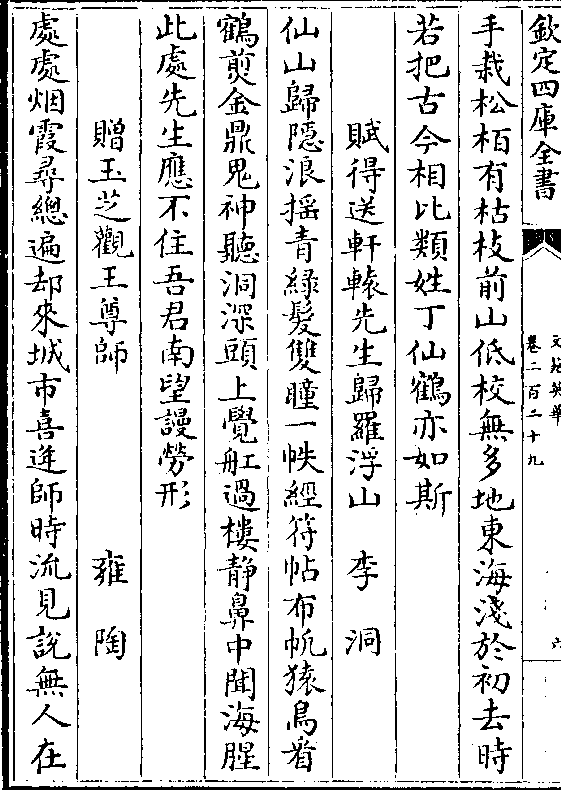 欽定四庫全書
文苑英華
卷二百二十九
六
手栽松栢有枯枝前山低校無多地東海淺於初去時
若把古今相比類姓丁仙鶴亦如斯
賦得送軒轅先生歸羅浮山 李洞
仙山歸隱浪揺青綠髮雙瞳一帙經符帖布帆猿鳥看
鶴煎金鼎鬼神聽洞深頭上覺舡過樓静鼻中聞海腥
此處先生應不住吾君南望謾勞形
贈玉芝觀王尊師 雍陶
處處烟霞尋總遍却來城市喜逢師時流見說無人在